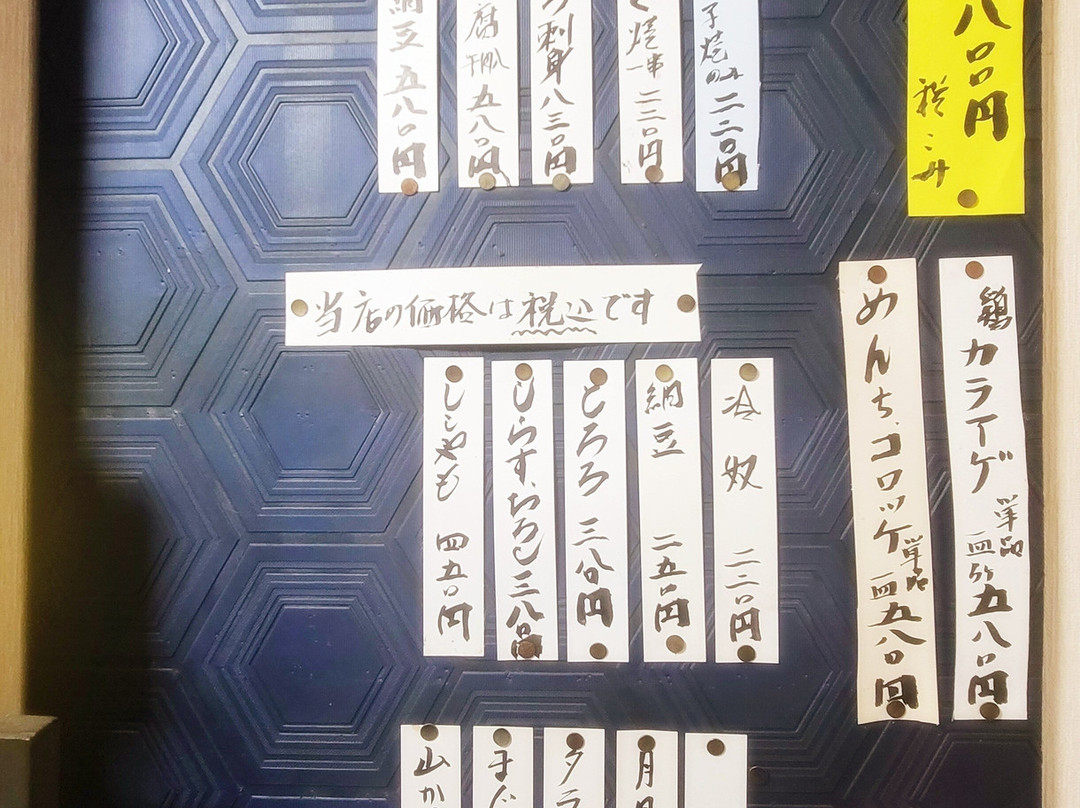 八〇〇円
税こみ
子焼のみ二二〇円
焼一串二三〇円
刺身八三〇円
腐 五八〇円
納豆 五八〇円
当店の価格は税込です
鶏カラアゲ単品一皿5ケ五八〇円
めんち、コロッケ単品一皿五八〇円
冷奴 二二〇円
納豆 二五〇円
とろろ 三八〇円
しらす、おろし三八〇円
ししゃも 四五〇円
月
タラ
まぐ
山か